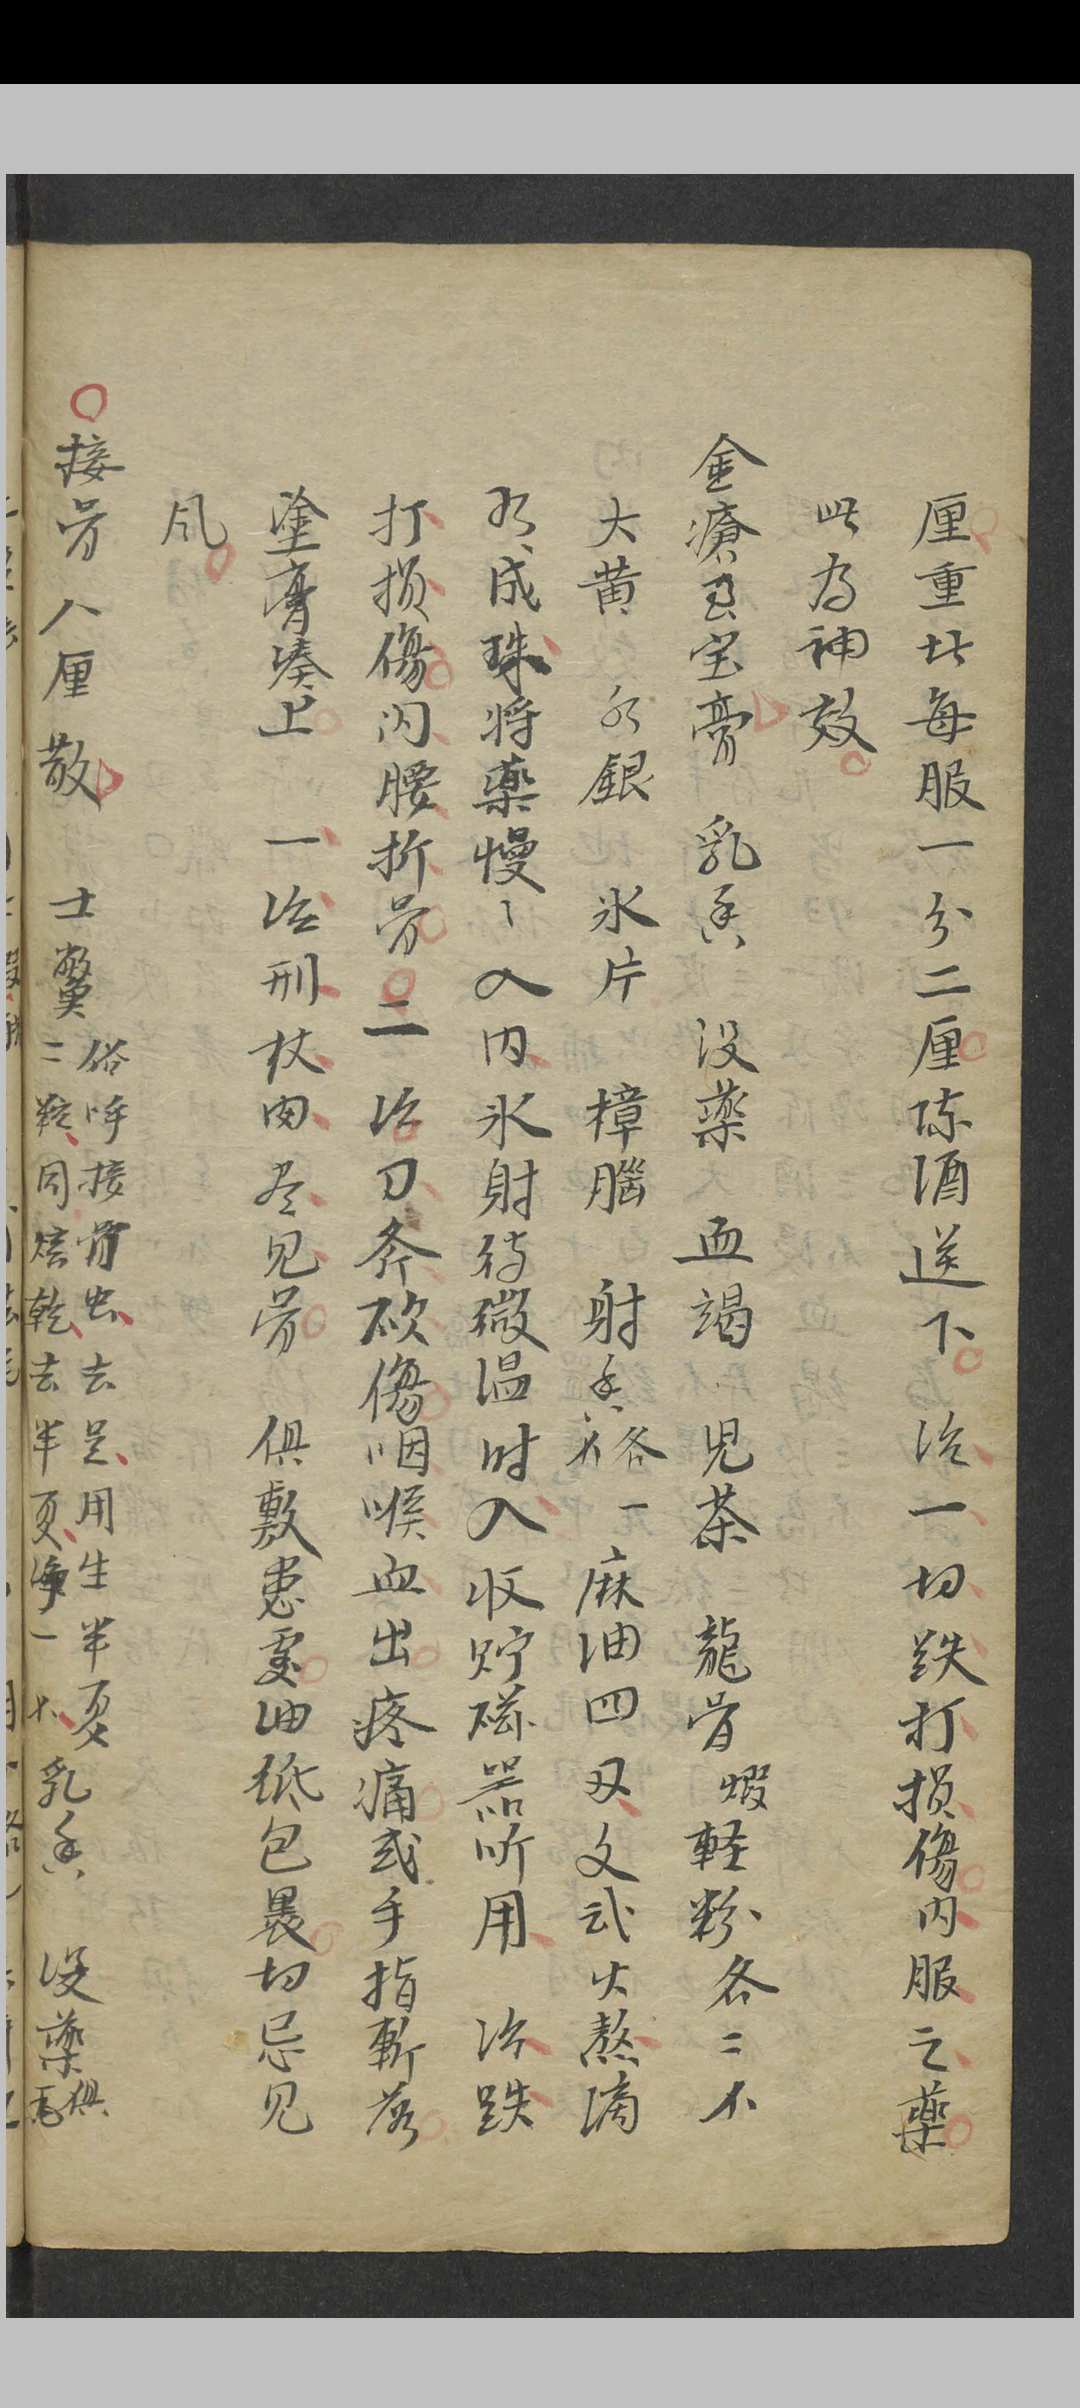 厘重七每服一分二厘陈酒送下 治一切跌打损傷内服之藥
此为神效
金瘡玉宝膏 乳香 没藥 血竭 児茶 龍骨煅 軽粉各二不
大黄 水銀 氷片 樟腦 射香各一 麻油四两文武火熬滴
水成珠将藥慢〻入内氷射待微温时入收贮磁器听用 治跌
打损傷闪腰折骨 二治刀斧砍傷咽喉血出疼痛或手指斬落
塗膏凑上 一治刑杖肉尽见骨 俱敷患處油纸包裹切忌见
风
接骨八厘散 土鱉俗呼接骨虫去足用生半炙二 同焙乾去半炙 一 乳香 没藥俱